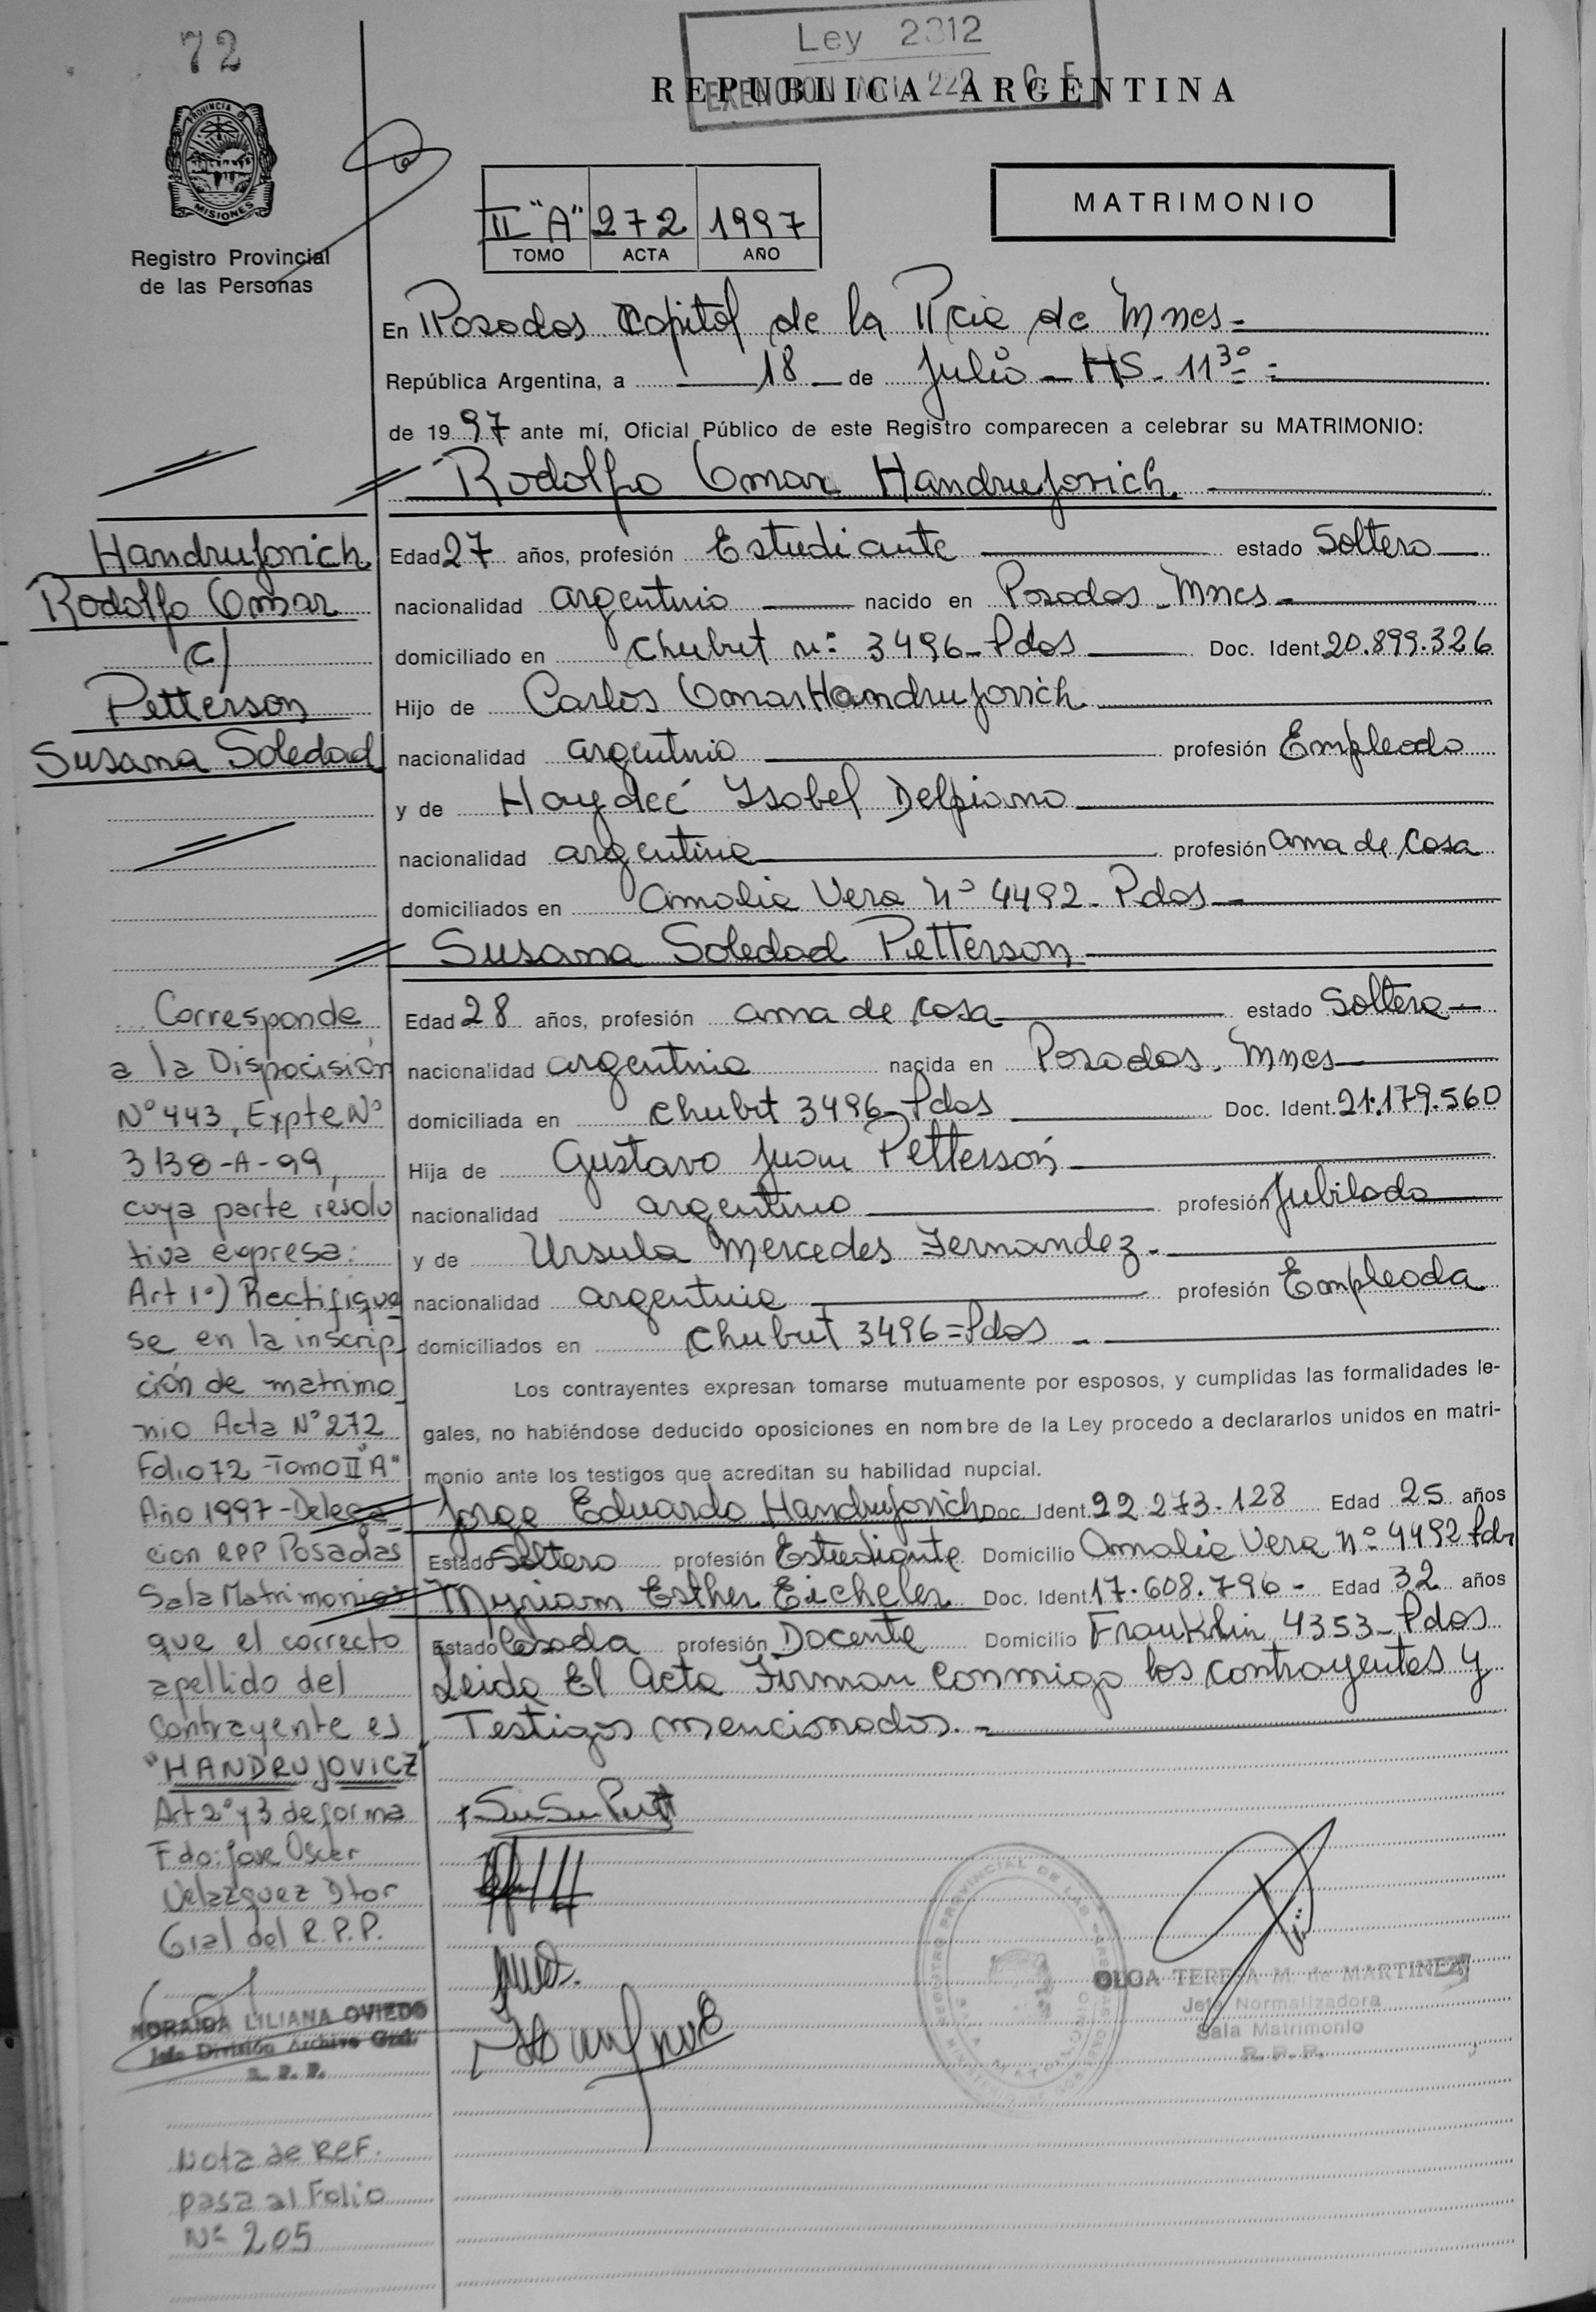 72
Ley 2312
EXENCION
REPUBLICA ARGENTINA
PROVINCIA
MISIONES
Registro Provincial
de las Personas
II "A" 272 1997
TOMO ACTA AÑO
MATRIMONIO
En Posadas Capital de la Pcia de Mnes =
República Argentina, a 18 de Julio - HS. 11 30 =
de 1997 ante mí, Oficial Público de este Registro comparecen a celebrar su MATRIMONIO:
Rodolfo Omar Handrujovich
Edad 27 años, profesión Estudiante estado Soltero
nacionalidad argentino nacido en Posadas - Mnes -
domiciliado en Chubut nº 3496 - Pdas Doc. Ident. 20.899.326
Hijo de Carlos Omar Handrujovich
nacionalidad argentino profesión Empleado
y de Haydeé Ysabel Delpiano
nacionalidad argentina profesión ama de casa
domiciliados en Amalia Vera Nº 4492 - Pdas
Susana Soledad Petterson
Edad 28 años, profesión ama de casa estado Soltera
nacionalidad argentina nacida en Posadas. Mnes
domiciliada en Chubut 3496 - Pdas Doc. Ident. 21.179.560
Hija de Gustavo Juan Petterson
nacionalidad argentino profesión Jubilado
y de Ursula Mercedes Fernandez -
nacionalidad argentina profesión Empleada
domiciliados en Chubut 3496 = Pdas -
Los contrayentes expresan tomarse mutuamente por esposos, y cumplidas las formalidades le-
gales, no habiéndose deducido oposiciones en nombre de la Ley procedo a declararlos unidos en matri-
monio ante los testigos que acreditan su habilidad nupcial.
Jorge Eduardo Handrujovich Doc. Ident. 22.273.128 Edad 25 años
Estado Soltero profesión Estudiante Domicilio Amalia Vera Nº 4492 Pdas
Myriam Esther Eicheler Doc. Ident. 17.608.796 - Edad 32 años
Estado Casada profesión Docente Domicilio Franklin 4353 - Pdas
Leida El Acta Firman conmigo los contrayentes y
Testigos mencionados. =
Handrujovich
Rodolfo Omar
c/
Petterson
Susana Soledad
Corresponde
a la Disposición
Nº 443, Expte Nº
3138-A-99,
cuya parte resolu
tiva expresa:
Art 1º) Rectifique
se en la inscrip
ción de matrimo
nio Acta Nº 272
Folio 72 - Tomo II "A"
Año 1997 - Delega
cion RPP Posadas
Sala Matrimonios
que el correcto
apellido del
contrayente es
"HANDRUJOVICZ
Art 2º y 3 de forma
Fdo: Jose Oscar
Velazquez Dtor
Gral del R.P.P.
NORAIDA LILIANA OVIEDO
Jefe División Archivo Gral.
R. P. P.
Nota de REF.
pasa al Folio
Nº 205
REGISTRO PROVINCIAL DE LAS PERSONAS
OLGA TERESA M. de MARTINEZ
Jefe Normalizadora
Sala Matrimonio
R. P. P.